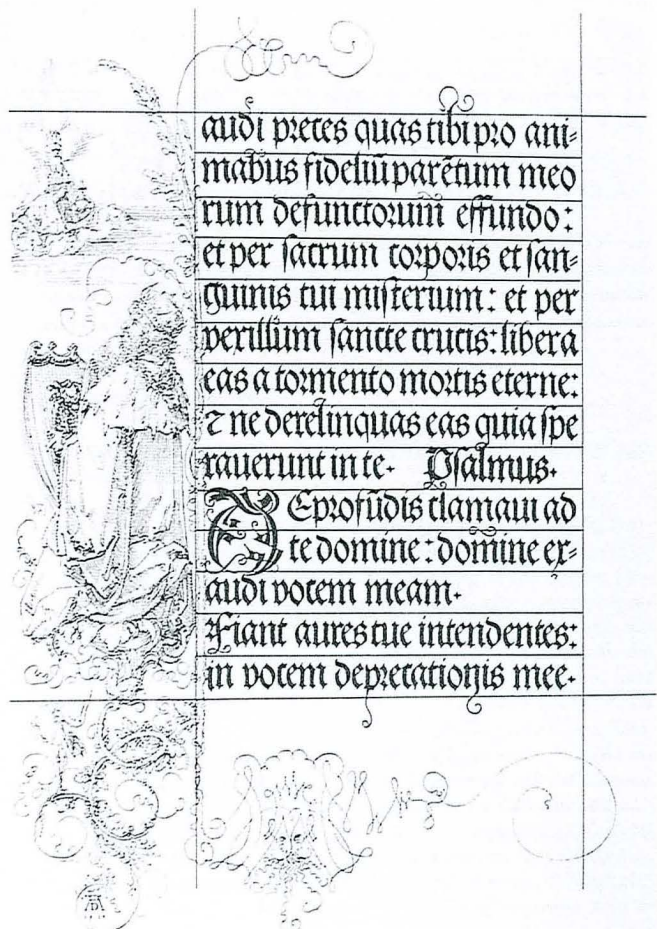 audi preces quas tibi pro ani=
mabus fideliū parētum meo
rum defunctorum effundo:
et per sacrum corporis et san=
guinis tui misterium: et per
vexillum sancte crucis: libera
eas a tormento mortis eterne:
⁊ ne derelinquas eas quia spe
rauerunt in te. Psalmus.
DE profūdis clamaui ad
te domine: domine ex=
audi vocem meam.
Fiant aures tue intendentes:
in vocem deprecationis mee.
AD